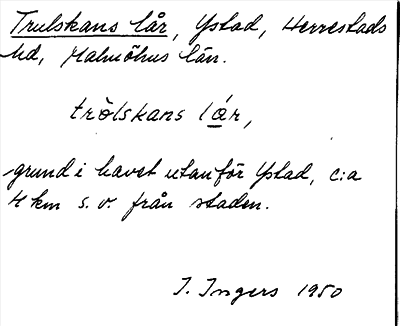 Trulskans lår, Ystad, Herrestads
hd, Malmöhus län.
tròlskans lár,
grund i havet utanför Ystad, c:a
4 km s.v. från staden.
I. Ingers 1950